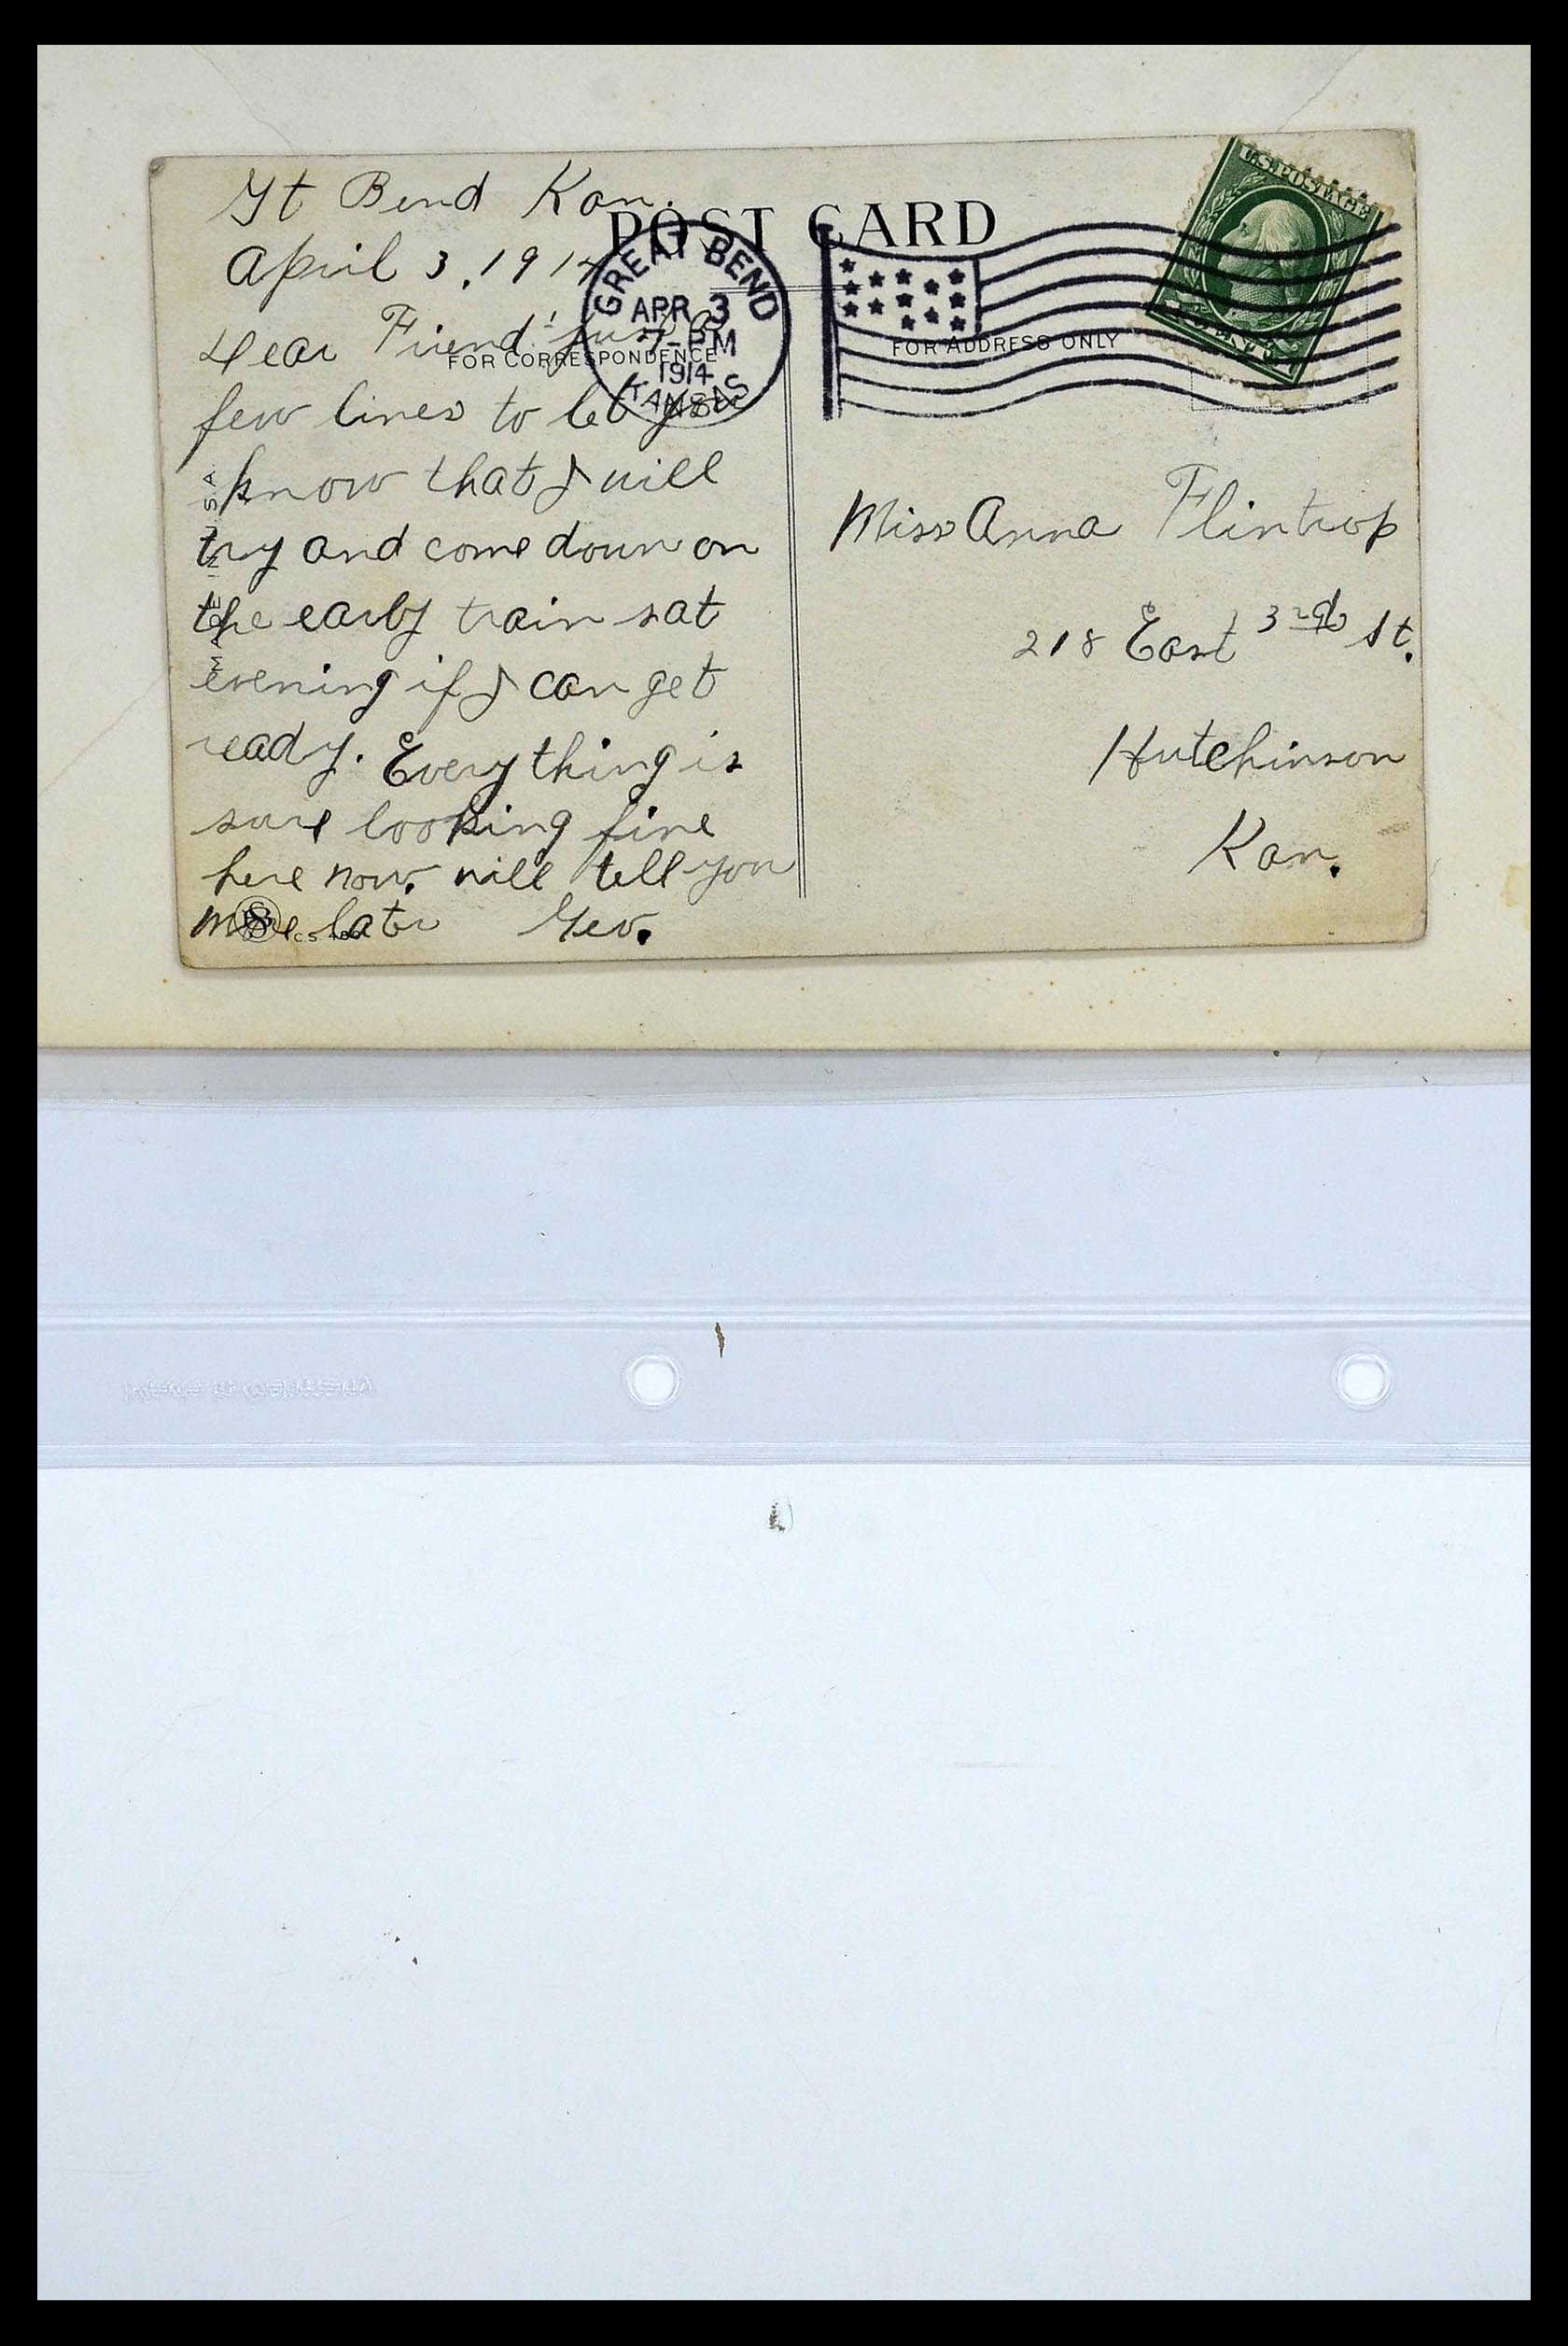 Gt Bend Kan.
April 3, 1914
Dear Friend: just a
few lines to let you
know that I will
try and come down on
the early train sat
evening if I can get
ready. Everything is
sure looking fine
here now. will tell you
more later Geo.
POST CARD
FOR CORRESPONDENCE
FOR ADDRESS ONLY
MADE IN USA
GREAT BEND
APR 3
7-PM
1914
KANSAS
U.S. POSTAGE
Miss Anna Flintrop
218 East 3rd St.
Hutchinson
Kan.